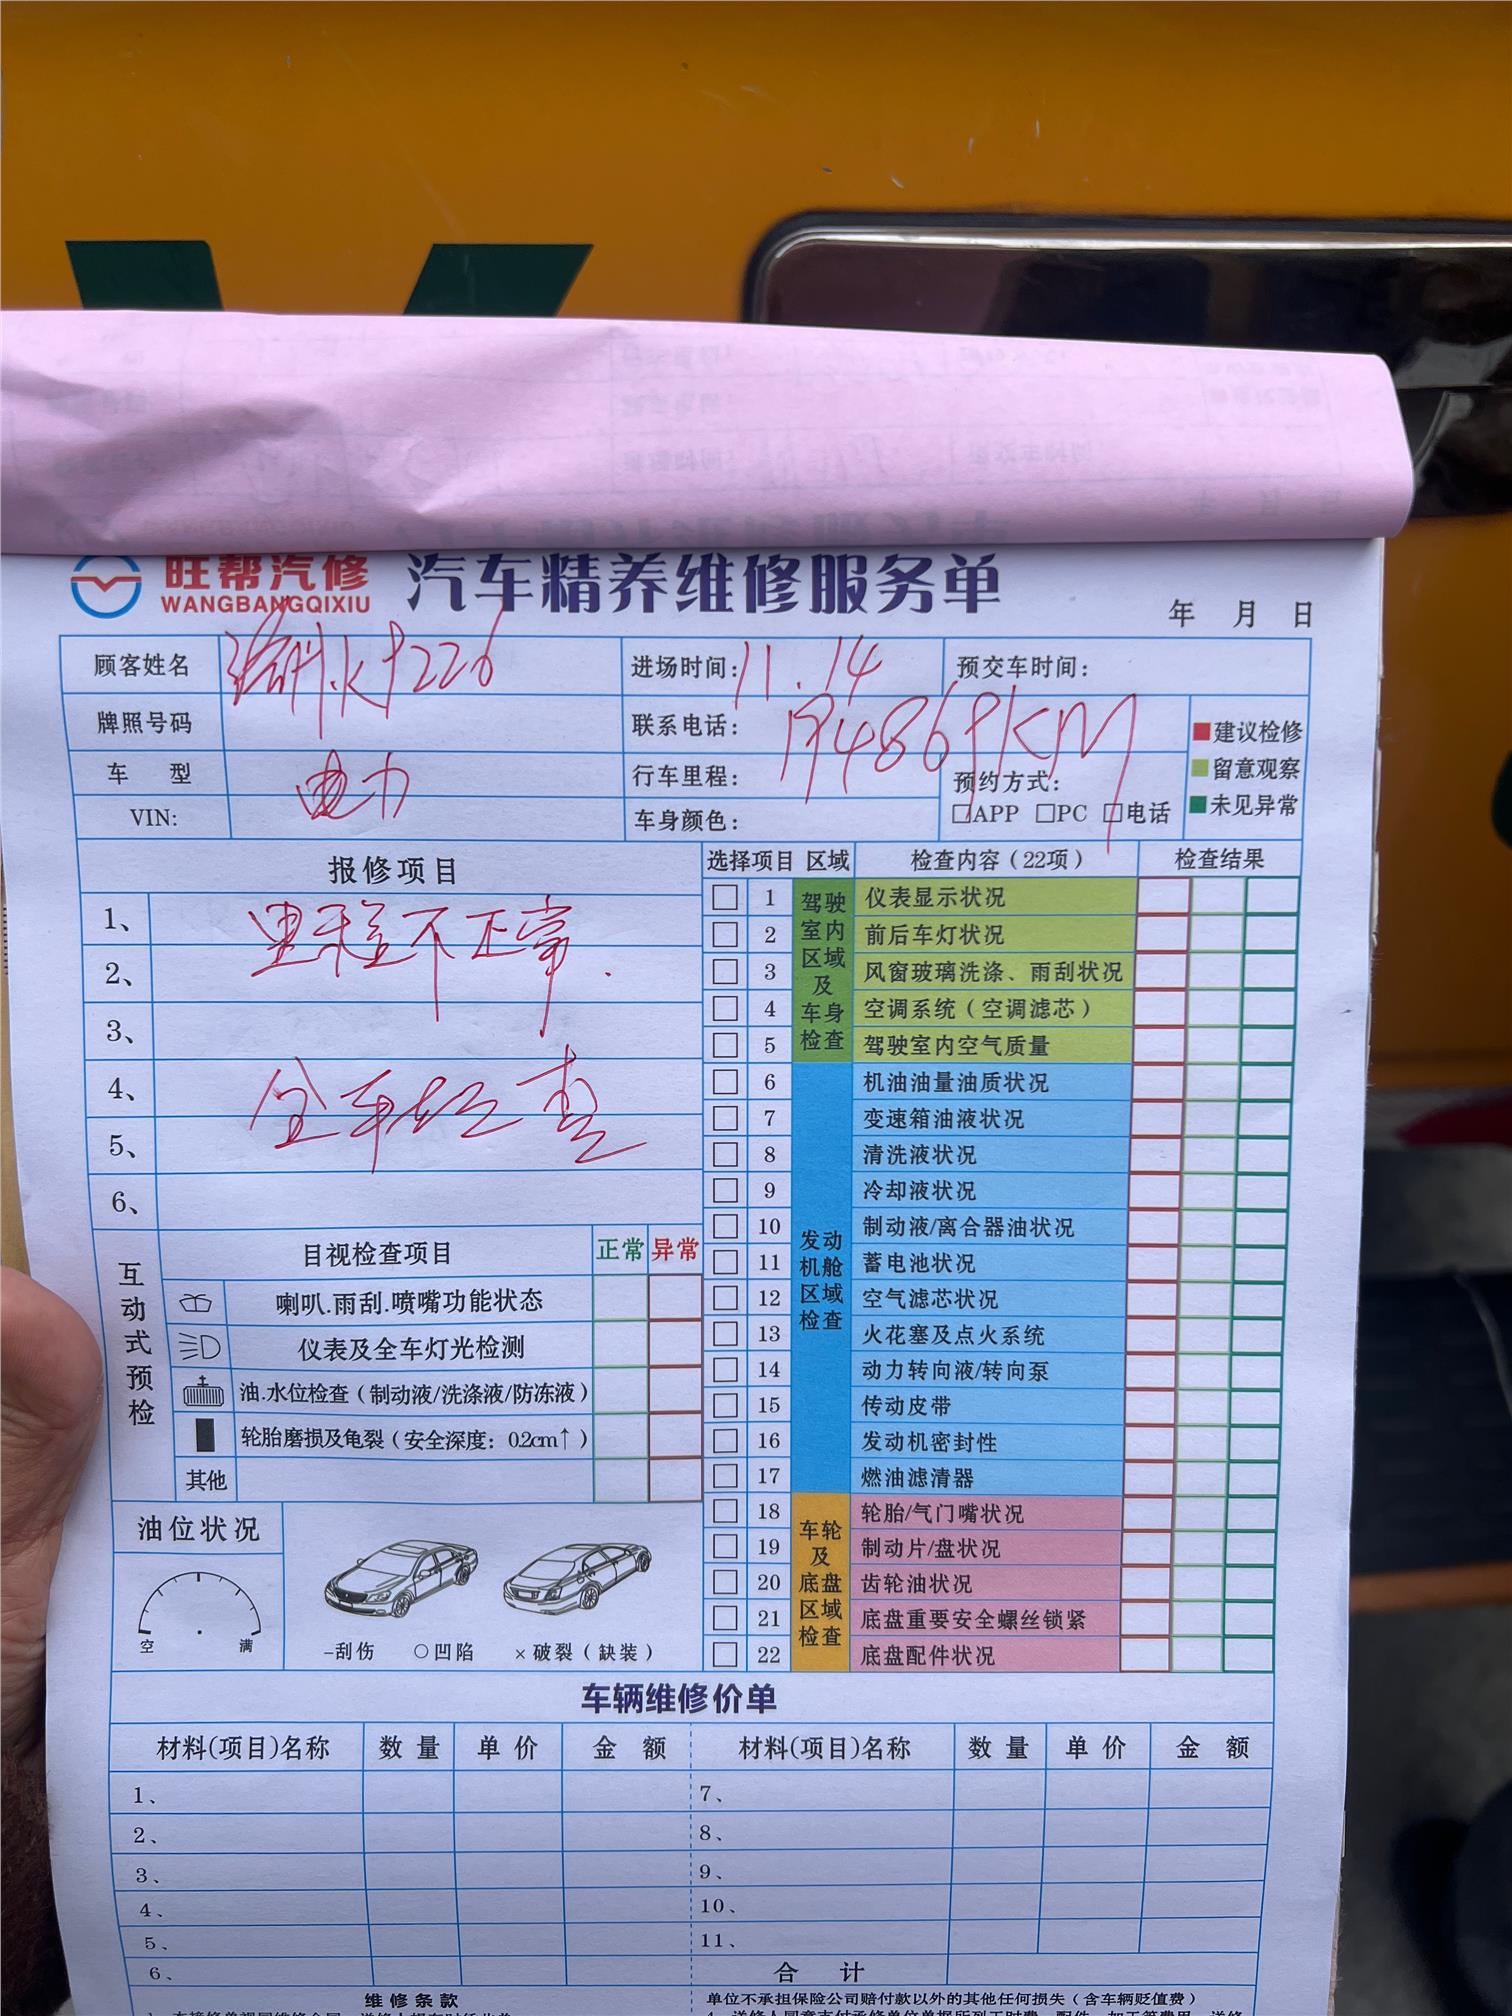 旺帮汽修
WANGBANGQIXIU
汽车精养维修服务单
年 月 日
顾客姓名 K7226
进场时间: 11.14
预交车时间:
牌照号码
联系电话:
车 型 电力
行车里程: 4869KM
预约方式:
□APP □PC □电话
VIN:
车身颜色:
建议检修
留意观察
未见异常
报修项目
1、 里程不正常.
2、
3、
4、 全车检查
5、
6、
选择项目 区域 检查内容(22项) 检查结果
驾驶室内区域及车身检查
1 仪表显示状况
2 前后车灯状况
3 风窗玻璃洗涤、雨刮状况
4 空调系统(空调滤芯)
5 驾驶室内空气质量
发动机舱区域检查
6 机油油量油质状况
7 变速箱油液状况
8 清洗液状况
9 冷却液状况
10 制动液/离合器油状况
11 蓄电池状况
12 空气滤芯状况
13 火花塞及点火系统
14 动力转向液/转向泵
15 传动皮带
16 发动机密封性
17 燃油滤清器
车轮及底盘区域检查
18 轮胎/气门嘴状况
19 制动片/盘状况
20 齿轮油状况
21 底盘重要安全螺丝锁紧
22 底盘配件状况
互动式预检
目视检查项目 正常 异常
喇叭.雨刮.喷嘴功能状态
仪表及全车灯光检测
油.水位检查(制动液/洗涤液/防冻液)
轮胎磨损及龟裂(安全深度: 0.2cm↑)
其他
油位状况
空 满
-刮伤 ○凹陷 ×破裂(缺装)
车辆维修价单
材料(项目)名称 数量 单价 金额 材料(项目)名称 数量 单价 金额
1、 7、
2、 8、
3、 9、
4、 10、
5、 11、
6、 合 计
维修条款
单位不承担保险公司赔付款以外的其他任何损失(含车辆贬值费)